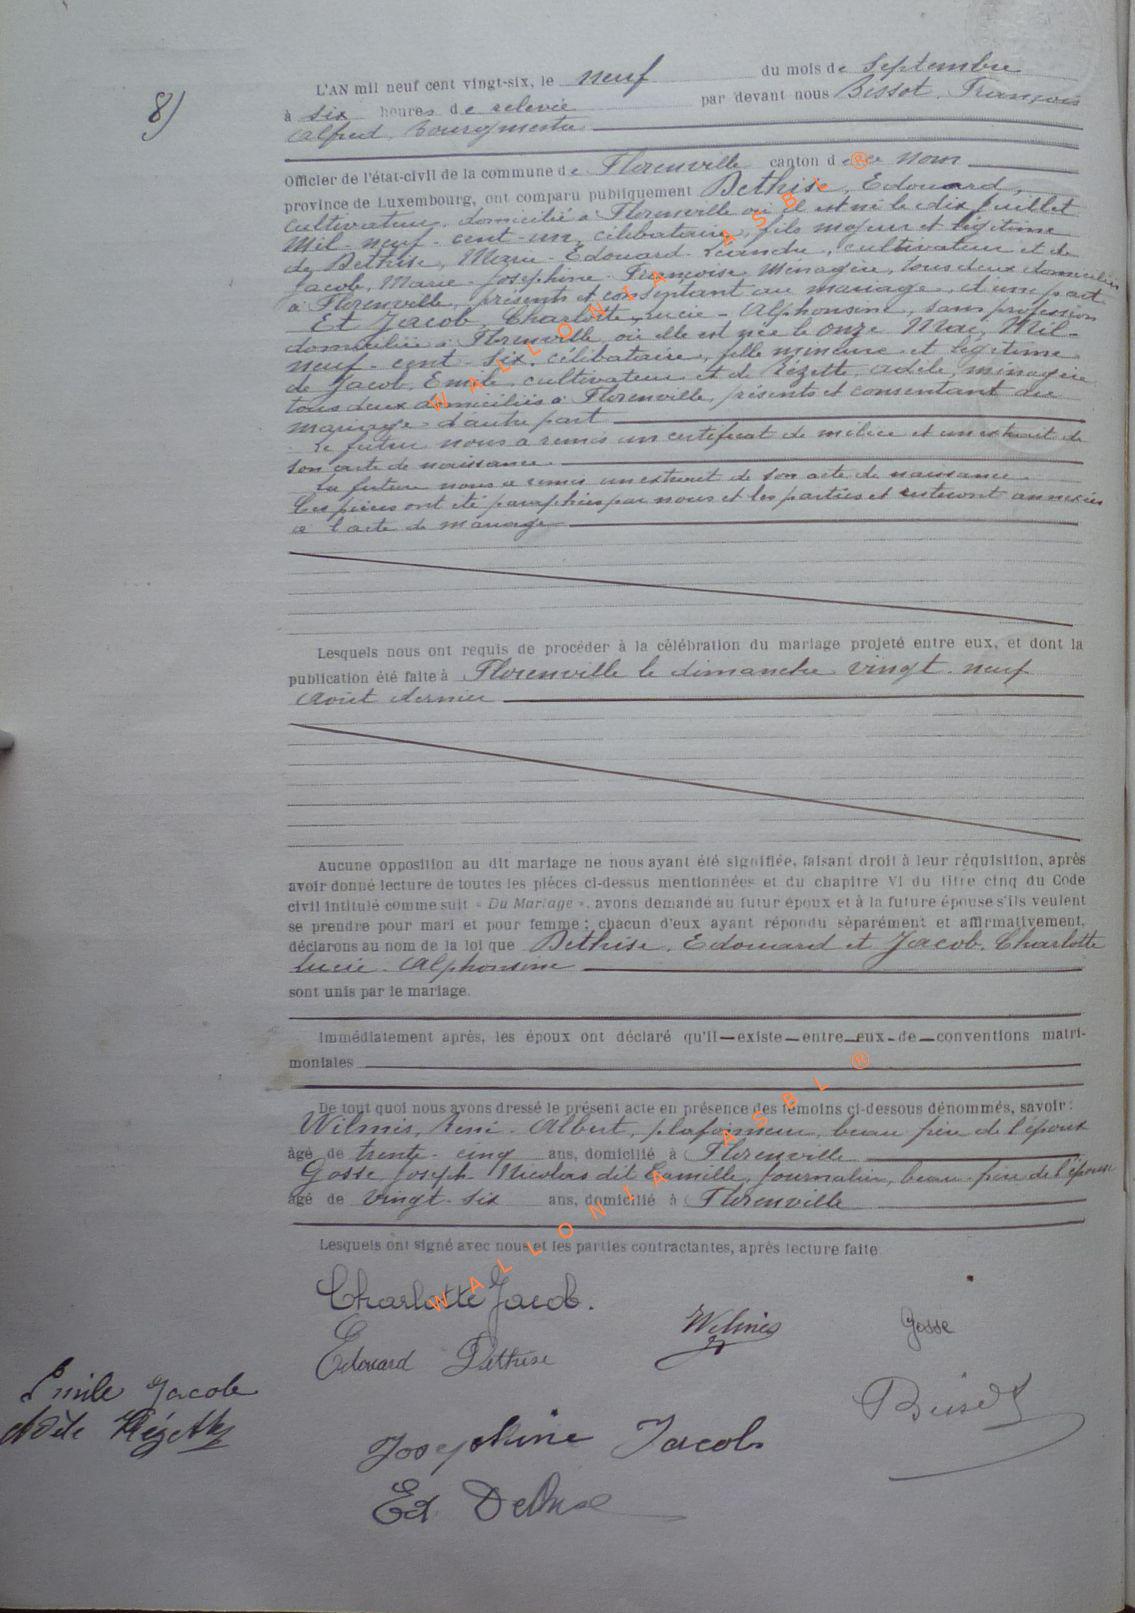 8)
L'AN mil neuf cent vingt-six, le neuf du mois de Septembre
à six heures de relevée par devant nous Bissot, François
Alfred, Bourgmestre
Officier de l'état-civil de la commune de Florenville canton de ce nom
province de Luxembourg, ont comparu publiquement Dethise, Edouard,
cultivateur, domicilié à Florenville où il est né le dix Juillet
Mil-neuf-cent-un, célibataire, fils majeur et légitime
de Dethise, Marie-Edouard-Léandre, cultivateur et de
Jacob, Marie-Joséphine-Françoise, Ménagère, tous deux domiciliés
à Florenville, présents et consentant au mariage, d'une part
Et Jacob, Charlotte-Lucie-Alphonsine, sans profession
domiciliée à Florenville où elle est née le onze Mai, Mil-
neuf-cent-six, célibataire, fille mineure et légitime
de Jacob, Emile, cultivateur et de Hézette, Adèle, ménagère
tous deux domiciliés à Florenville, présents et consentant au
mariage d'autre part
Le futur nous a remis un certificat de milice et un extrait de
son acte de naissance.
La future nous a remis un extrait de son acte de naissance
Ces pièces ont été paraphées par nous et les parties et resteront annexées
à l'acte de mariage
Lesquels nous ont requis de procéder à la célébration du mariage projeté entre eux, et dont la
publication été faite à Florenville le dimanche vingt-neuf
Août dernier
Aucune opposition au dit mariage ne nous ayant été signifiée, faisant droit à leur réquisition, après
avoir donné lecture de toutes les pièces ci-dessus mentionnées et du chapitre VI du titre cinq du Code
civil intitulé comme suit « Du Mariage », avons demandé au futur époux et à la future épouse s'ils veulent
se prendre pour mari et pour femme ; chacun d'eux ayant répondu séparément et affirmativement,
déclarons au nom de la loi que Dethise, Edouard et Jacob, Charlotte
Lucie-Alphonsine
sont unis par le mariage.
Immédiatement après, les époux ont déclaré qu'il — existe — entre — eux — de — conventions matri-
moniales
De tout quoi nous avons dressé le présent acte en présence des témoins ci-dessous dénommés, savoir :
Wilmès, René-Albert, plafonneur, beau frère de l'époux
âgé de trente-cinq ans, domicilié à Florenville
Gosse Joseph Nicolas dit Camille, Journalier, beau-frère de l'épouse
âgé de vingt-six ans, domicilié à Florenville
Lesquels ont signé avec nous et les parties contractantes, après lecture faite
Charlotte Jacob.
Wilmès Gosse
Edouard Dethise
Emile Jacob
Adèle Hézette
Joséphine Jacob
Ed. Dethise
WALLONIA ASBL ®
WALLONIA ASBL ®